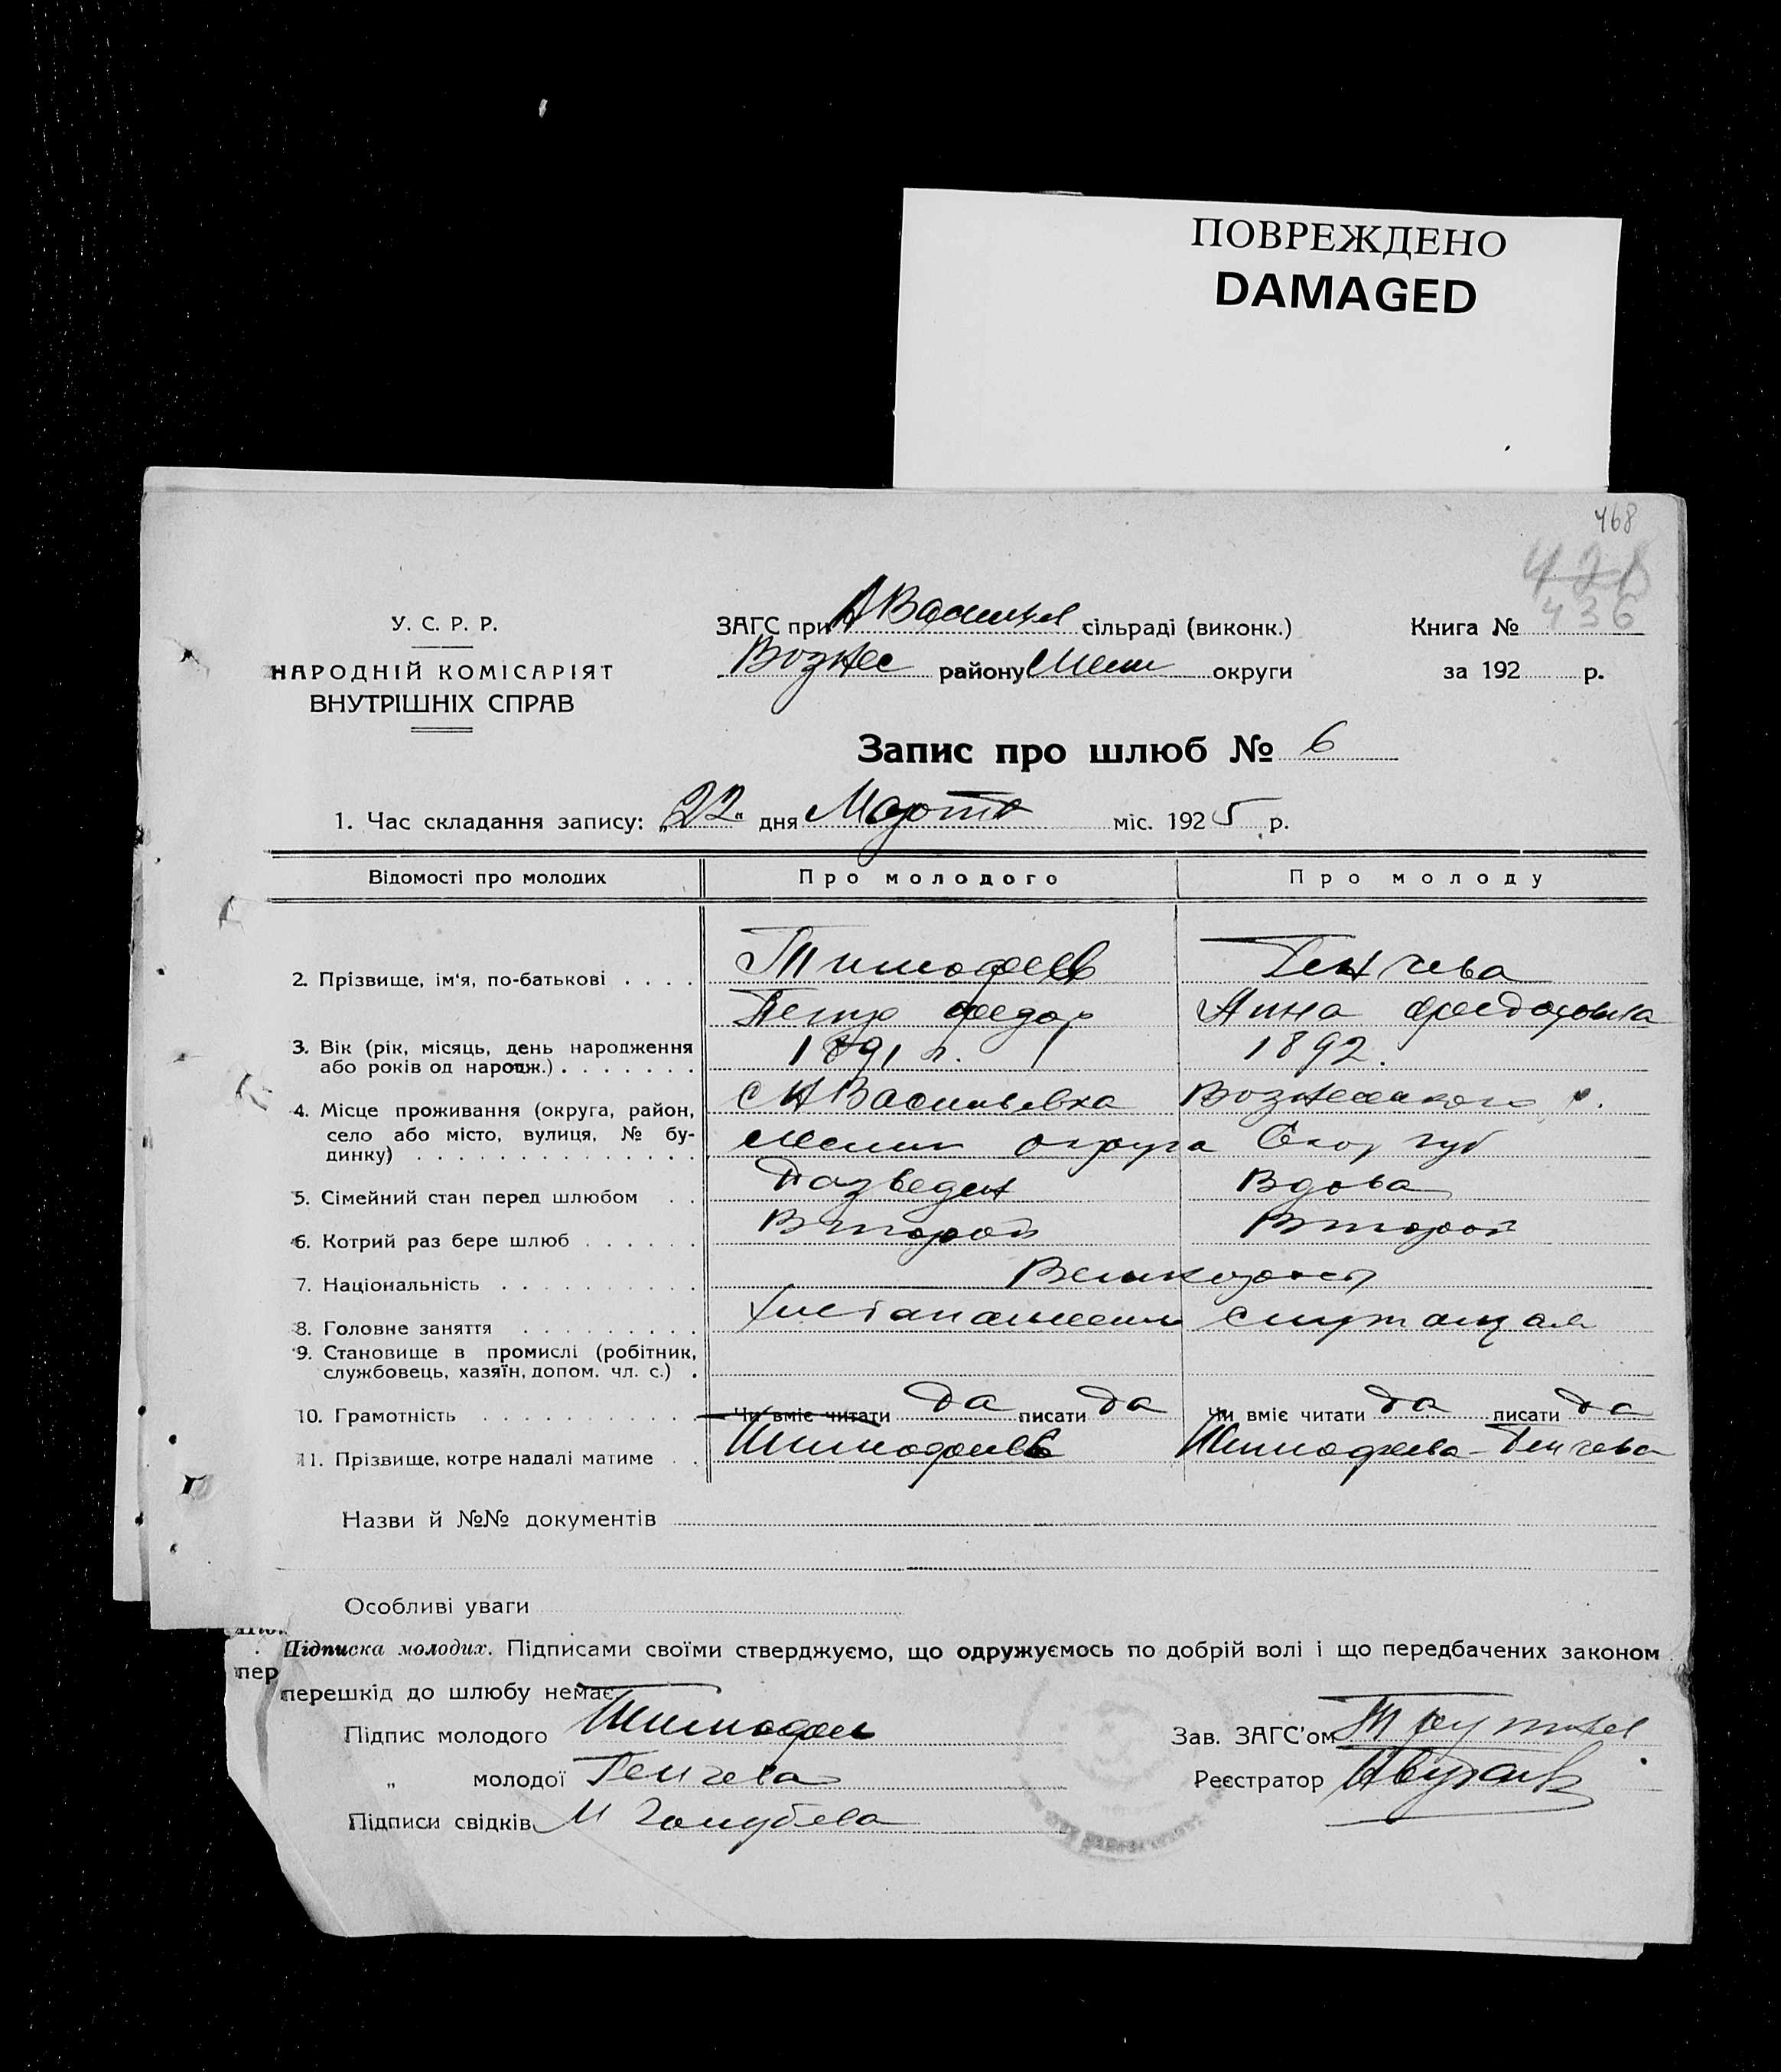 ПОВРЕЖДЕНО
DAMAGED
468
428
436
У. С. Р. Р.
НАРОДНІЙ КОМІСАРІЯТ
ВНУТРІШНІХ СПРАВ
ЗАГС при А Васильев сільраді (виконк.)
Вознес району Мели округи
Книга №
за 192 р.
Запис про шлюб № 6
1. Час складання запису: „22" дня Марта міс. 1925 р.
Відомості про молодих Про молодого Про молоду
2. Прізвище, ім'я, по-батькові Тимофеев Генчева
Петр Федор Анна Федоровна
3. Вік (рік, місяць, день народження
або років од народж.) 1891 г. 1892.
4. Місце проживання (округа, район, с А Васильевка Вознесенского р.
село або місто, вулиця, № бу-
динку) Мелит округа Екат губ
5. Сімейний стан перед шлюбом Разведен Вдова
6. Котрий раз бере шлюб Второй Второй
7. Національність Великорос
8. Головне заняття служащая
9. Становище в промислі (робітник,
службовець, хазяїн, допом. чл. с.)
10. Грамотність Чи вміє читати да писати да Чи вміє читати да писати да
11. Прізвище, котре надалі матиме Тимофеев Тимофеева-Генчева
Назви й №№ документів
Особливі уваги
Підписка молодих. Підписами своїми стверджуємо, що одружуємось по добрій волі і що передбачених законом
пер
перешкід до шлюбу немає.
Підпис молодого Тимофеев Зав. ЗАГС'ом
„ молодої Генчева Реєстратор
Підписи свідків М Голубева